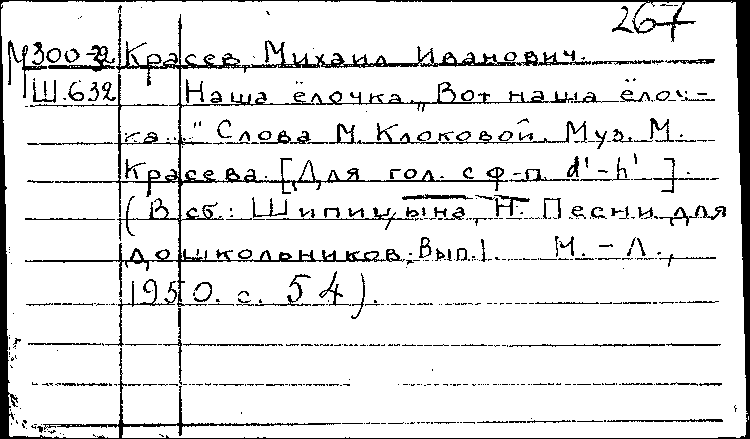 267
М300-22 Красев, Михаил Иванович.
Ш.632 Наша ёлочка. „Вот наша ёлоч-
ка..." Слова М. Клоковой. Муз. М.
Красева. [Для гол. с ф-п. d'-h'].
(В сб.: Шипицына, Н. Песни для
дошкольников. Вып. 1. М. - Л.,
1950. с. 54).